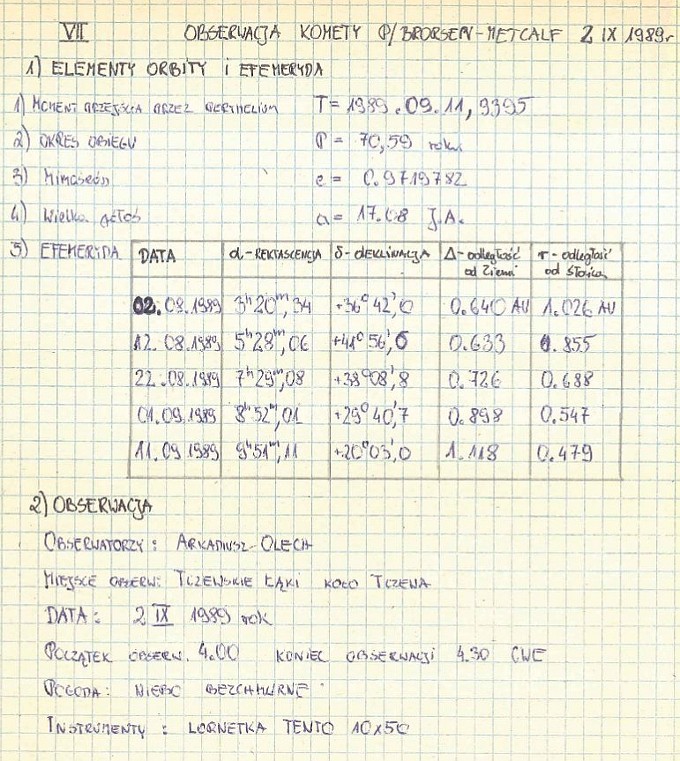 VII OBSERWACJA KOMETY P/BRORSEN-METCALF 2 IX 1989r
1) ELEMENTY ORBITY i EFEMERYDA
1) MOMENT PRZEJŚCIA PRZEZ PERYHELIUM T = 1989.09.11,9395
2) OKRES OBIEGU P = 70,59 roku
3) Mimośród e = 0.9719782
4) Wielka półoś a = 17.08 J.A.
5) EFEMERYDA
DATA α-REKTASCENCJA δ-DEKLINACJA Δ-odległość od Ziemi r-odległość od Słońca
02.08.1989 3h20m,34 +36°42',0 0.640 AU 1.026 AU
12.08.1989 5h28m,06 +41°56',6 0.633 0.855
22.08.1989 7h29m,08 +38°08',8 0.726 0.688
01.09.1989 8h52m,01 +29°40',7 0.898 0.547
11.09.1989 9h51m,11 +20°03',0 1.118 0.479
2) OBSERWACJA
OBSERWATORZY: ARKADIUSZ OLECH
MIEJSCE OBSERW: TCZEWSKIE ŁĄKI KOŁO TCZEWA
DATA: 2 IX 1989 rok
POCZĄTEK OBSERW. 4.00 KONIEC OBSERWACJI 4.30 CWE
POGODA: NIEBO BEZCHMURNE
INSTRUMENTY: LORNETKA TENTO 10x50